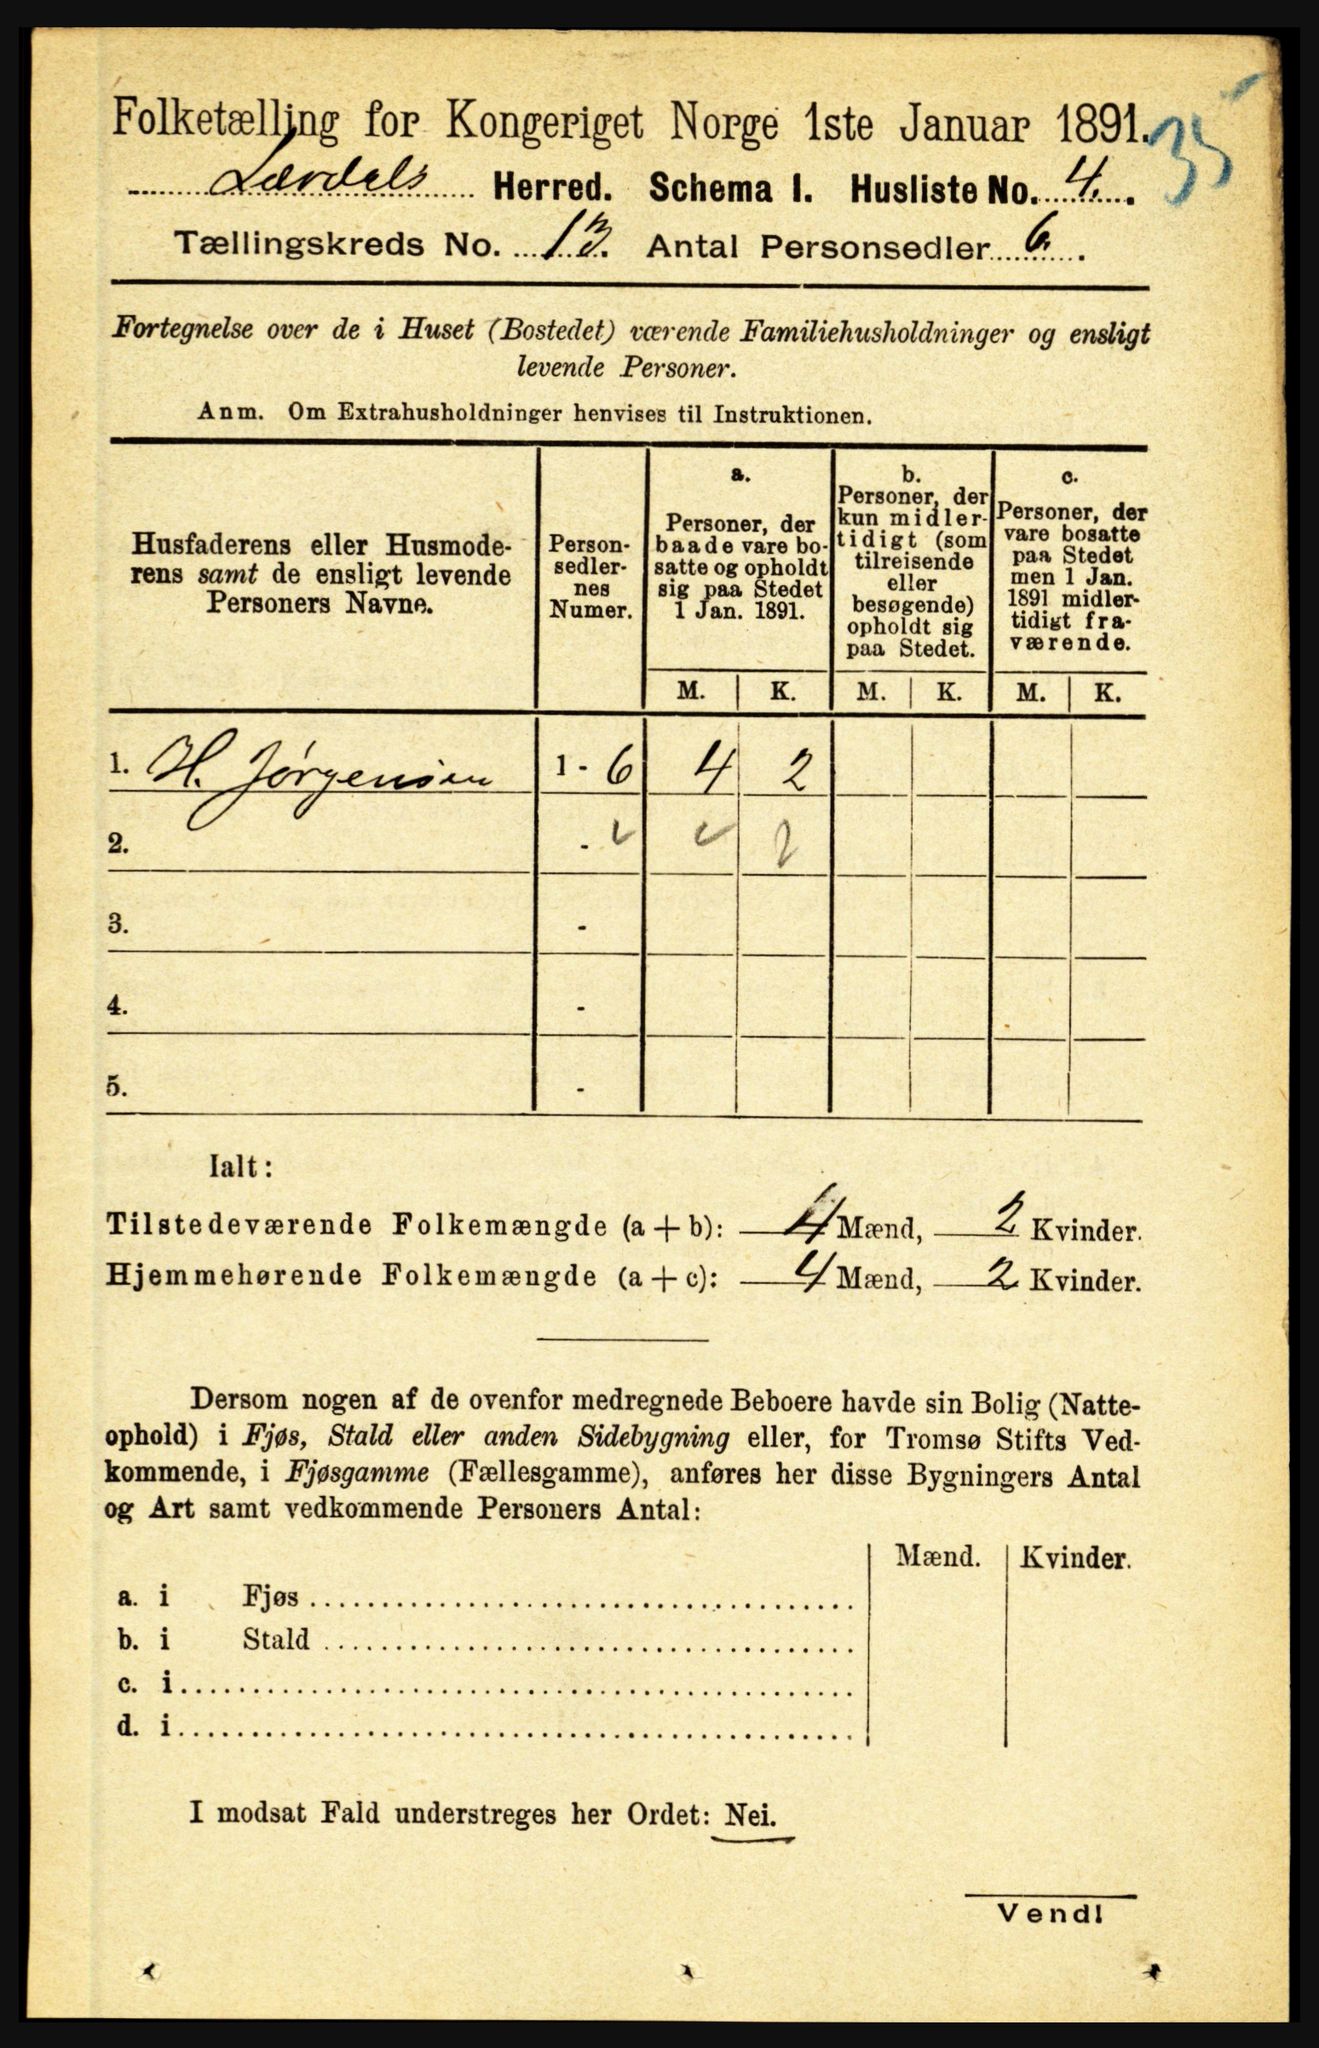 Folketælling for Kongeriget Norge 1ste Januar 1891.
35
Lærdals Herred. Schema I. Husliste No. 4.
Tællingskreds No. 13. Antal Personsedler 6.
Fortegnelse over de i Huset (Bostedet) værende Familiehusholdninger og ensligt
levende Personer.
Anm. Om Extrahusholdninger henvises til Instruktionen.
Husfaderens eller Husmode-
rens samt de ensligt levende
Personers Navne.
Person-
sedler-
nes
Numer.
a.
Personer, der
baade vare bo-
satte og opholdt
sig paa Stedet
1 Jan. 1891.
b.
Personer, der
kun midler-
tidigt (som
tilreisende
eller
besøgende)
opholdt sig
paa Stedet.
c.
Personer, der
vare bosatte
paa Stedet
men 1 Jan.
1891 midler-
tidigt fra-
værende.
M. K. M. K. M. K.
1. H. Jørgensen 1 - 6 4 2
2. -
3. -
4. -
5. -
Ialt:
Tilstedeværende Folkemængde (a + b): 4 Mænd, 2 Kvinder.
Hjemmehørende Folkemængde (a + c): 4 Mænd, 2 Kvinder.
Dersom nogen af de ovenfor medregnede Beboere havde sin Bolig (Natte-
ophold) i Fjøs, Stald eller anden Sidebygning eller, for Tromsø Stifts Ved-
kommende, i Fjøsgamme (Fællesgamme), anføres her disse Bygningers Antal
og Art samt vedkommende Personers Antal:
Mænd. Kvinder.
a. i Fjøs
b. i Stald
c. i
d. i
I modsat Fald understreges her Ordet: Nei.
Vend!